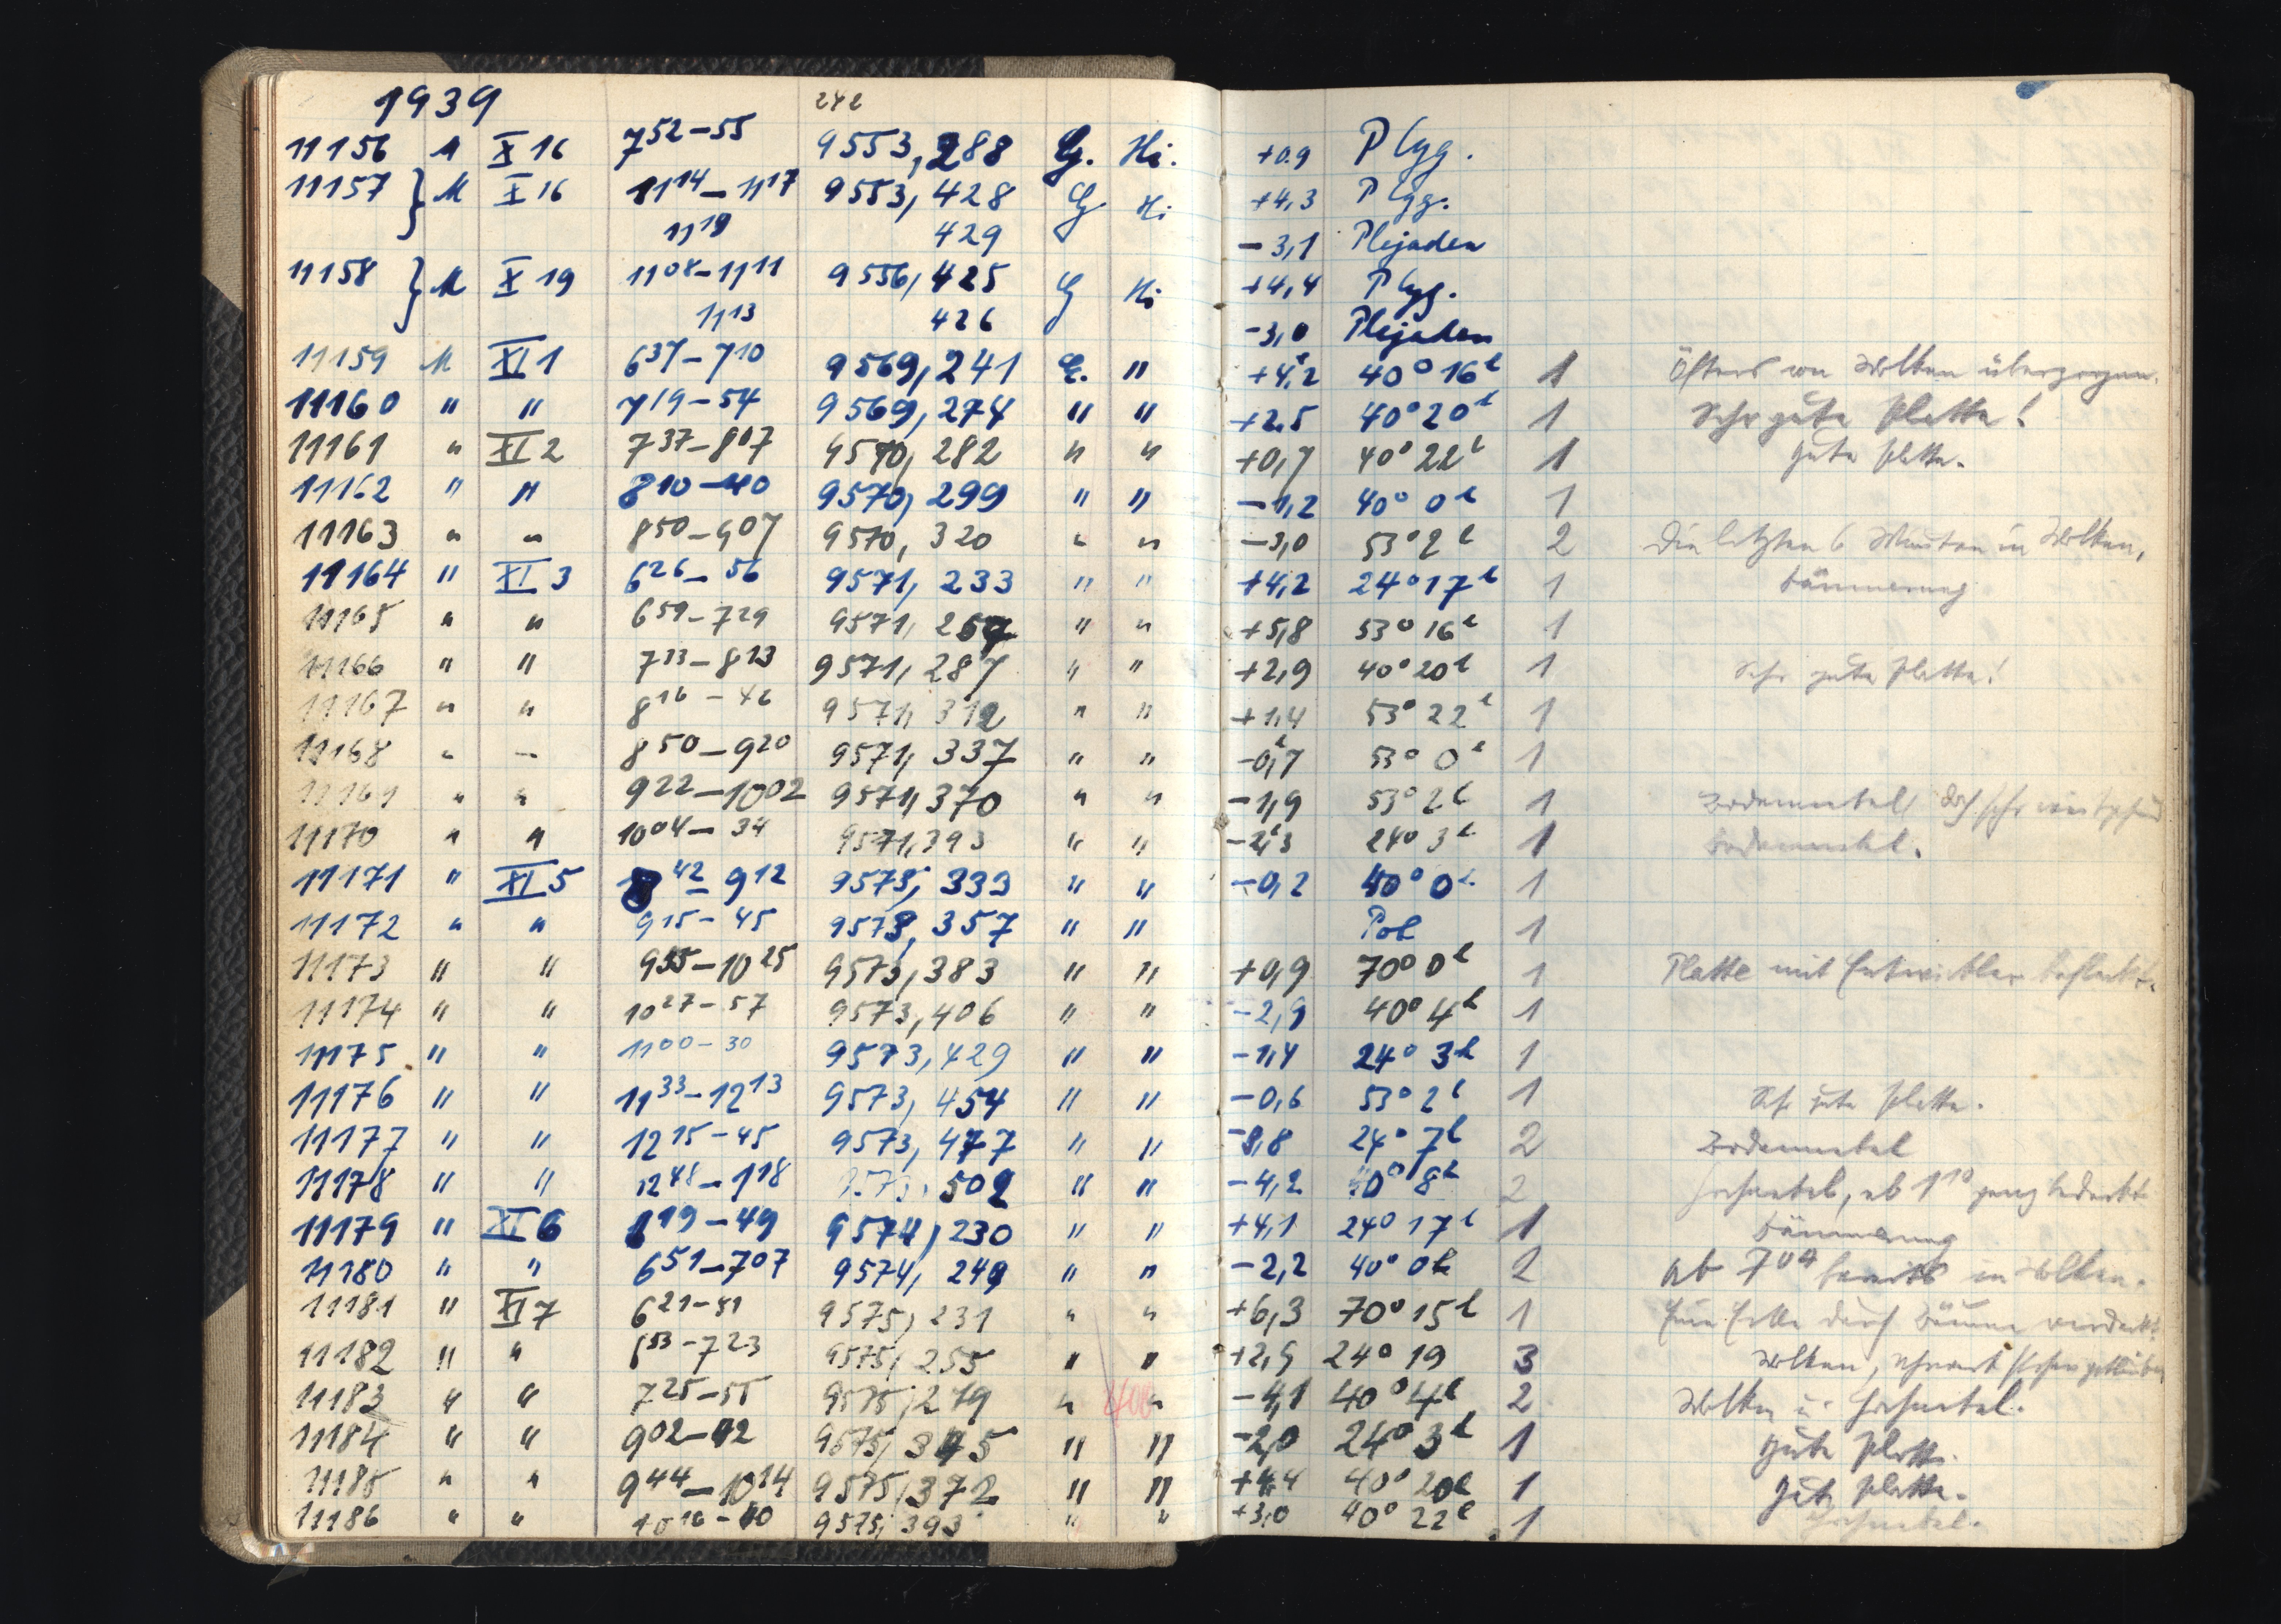 1939 242
11156 M X 16 7 52-55 9553,288 G. Hi. +0.9 P Cyg.
11157 } M X 16 11 14-11 17 9553,428 G. Hi +4,3 P Cyg.
11 19 429 -3,1 Plejaden
11158 } M X 19 11 08-11 11 9556,425 G Hi +4,4 P Cyg.
11 13 426 -3,0 Plejaden
11159 M XI 1 6 37-7 10 9569,241 G. " +4,2 40° 16h 1 Öfters von Wolken überzogen.
11160 " " 7 19-54 9569,274 " " +2,5 40° 20h 1 Sehr gute Platte!
11161 " XI 2 7 37-8 07 9570,282 " " +0,7 40° 22h 1 gute Platte.
11162 " " 8 10-40 9570,299 " " -1,2 40° 0h 1
11163 " " 8 50-9 07 9570,320 " " -3,0 53° 2h 2 Die letzten 6 Minuten in Wolken,
11164 " XI 3 6 26-56 9571,233 " " +4,2 24° 17h 1 Dämmerung
11165 " " 6 59-7 29 9571,257 " " +5,8 53° 16h 1
11166 " " 7 33-8 13 9571,287 " " +2,9 40° 20h 1 Sehr gute Platte!
11167 " " 8 16-46 9571,312 " " +1,4 53° 22h 1
11168 " " 8 50-9 20 9571,337 " " -0,7 53° 0h 1
11169 " " 9 22-10 02 9571,370 " " -1,9 53° 2h 1 Bodennebel, doch sehr
11170 " " 10 04-34 9571,393 " " -2,3 24° 3h 1 Bodennebel.
11171 " XI 5 8 42-9 12 9573,333 " " -0,2 40° 0h 1
11172 " " 9 15-45 9573,357 " " Pol 1
11173 " " 9 55-10 25 9573,383 " " +0,9 70° 0h 1 Platte mit Entwickler befleckt.
11174 " " 10 27-57 9573,406 " " -2,9 40° 4h 1
11175 " " 11 00-30 9573,429 " " -1,4 24° 3h 1
11176 " " 11 33-12 13 9573,454 " " -0,6 53° 2h 1 Sehr gute Platte.
11177 " " 12 15-45 9573,477 " " -3,8 24° 7h 2 Bodennebel
11178 " " 12 48-1 18 9573,502 " " -4,2 40° 8h 2 Hochnebel, ab 1 10 ganz bedeckt
11179 " XI 6 6 19-49 9574,230 " " +4,1 24° 17h 1 Dämmerung
11180 " " 6 51-7 07 9574,249 " " -2,2 40° 0h 2 ab 7 04 bereits in Wolken.
11181 " XI 7 6 21-51 9575,231 " " +6,3 70° 15h 1 Eine Ecke durch Bäume verdeckt
11182 " " 6 53-7 23 9575,255 " " +2,9 24° 19 3 Wolken,
11183 " " 7 25-55 9575,279 " 400 " -4,1 40° 4h 2 Wolken u. Hochnebel.
11184 " " 9 02-42 9575,345 " " -2,0 24° 3h 1 gute Platte.
11185 " " 9 44-10 14 9575,372 " " +4,4 40° 20h 1 gute Platte.
11186 " " 10 16-40 9575,393 " " +3,0 40° 22h 1 Hochnebel.